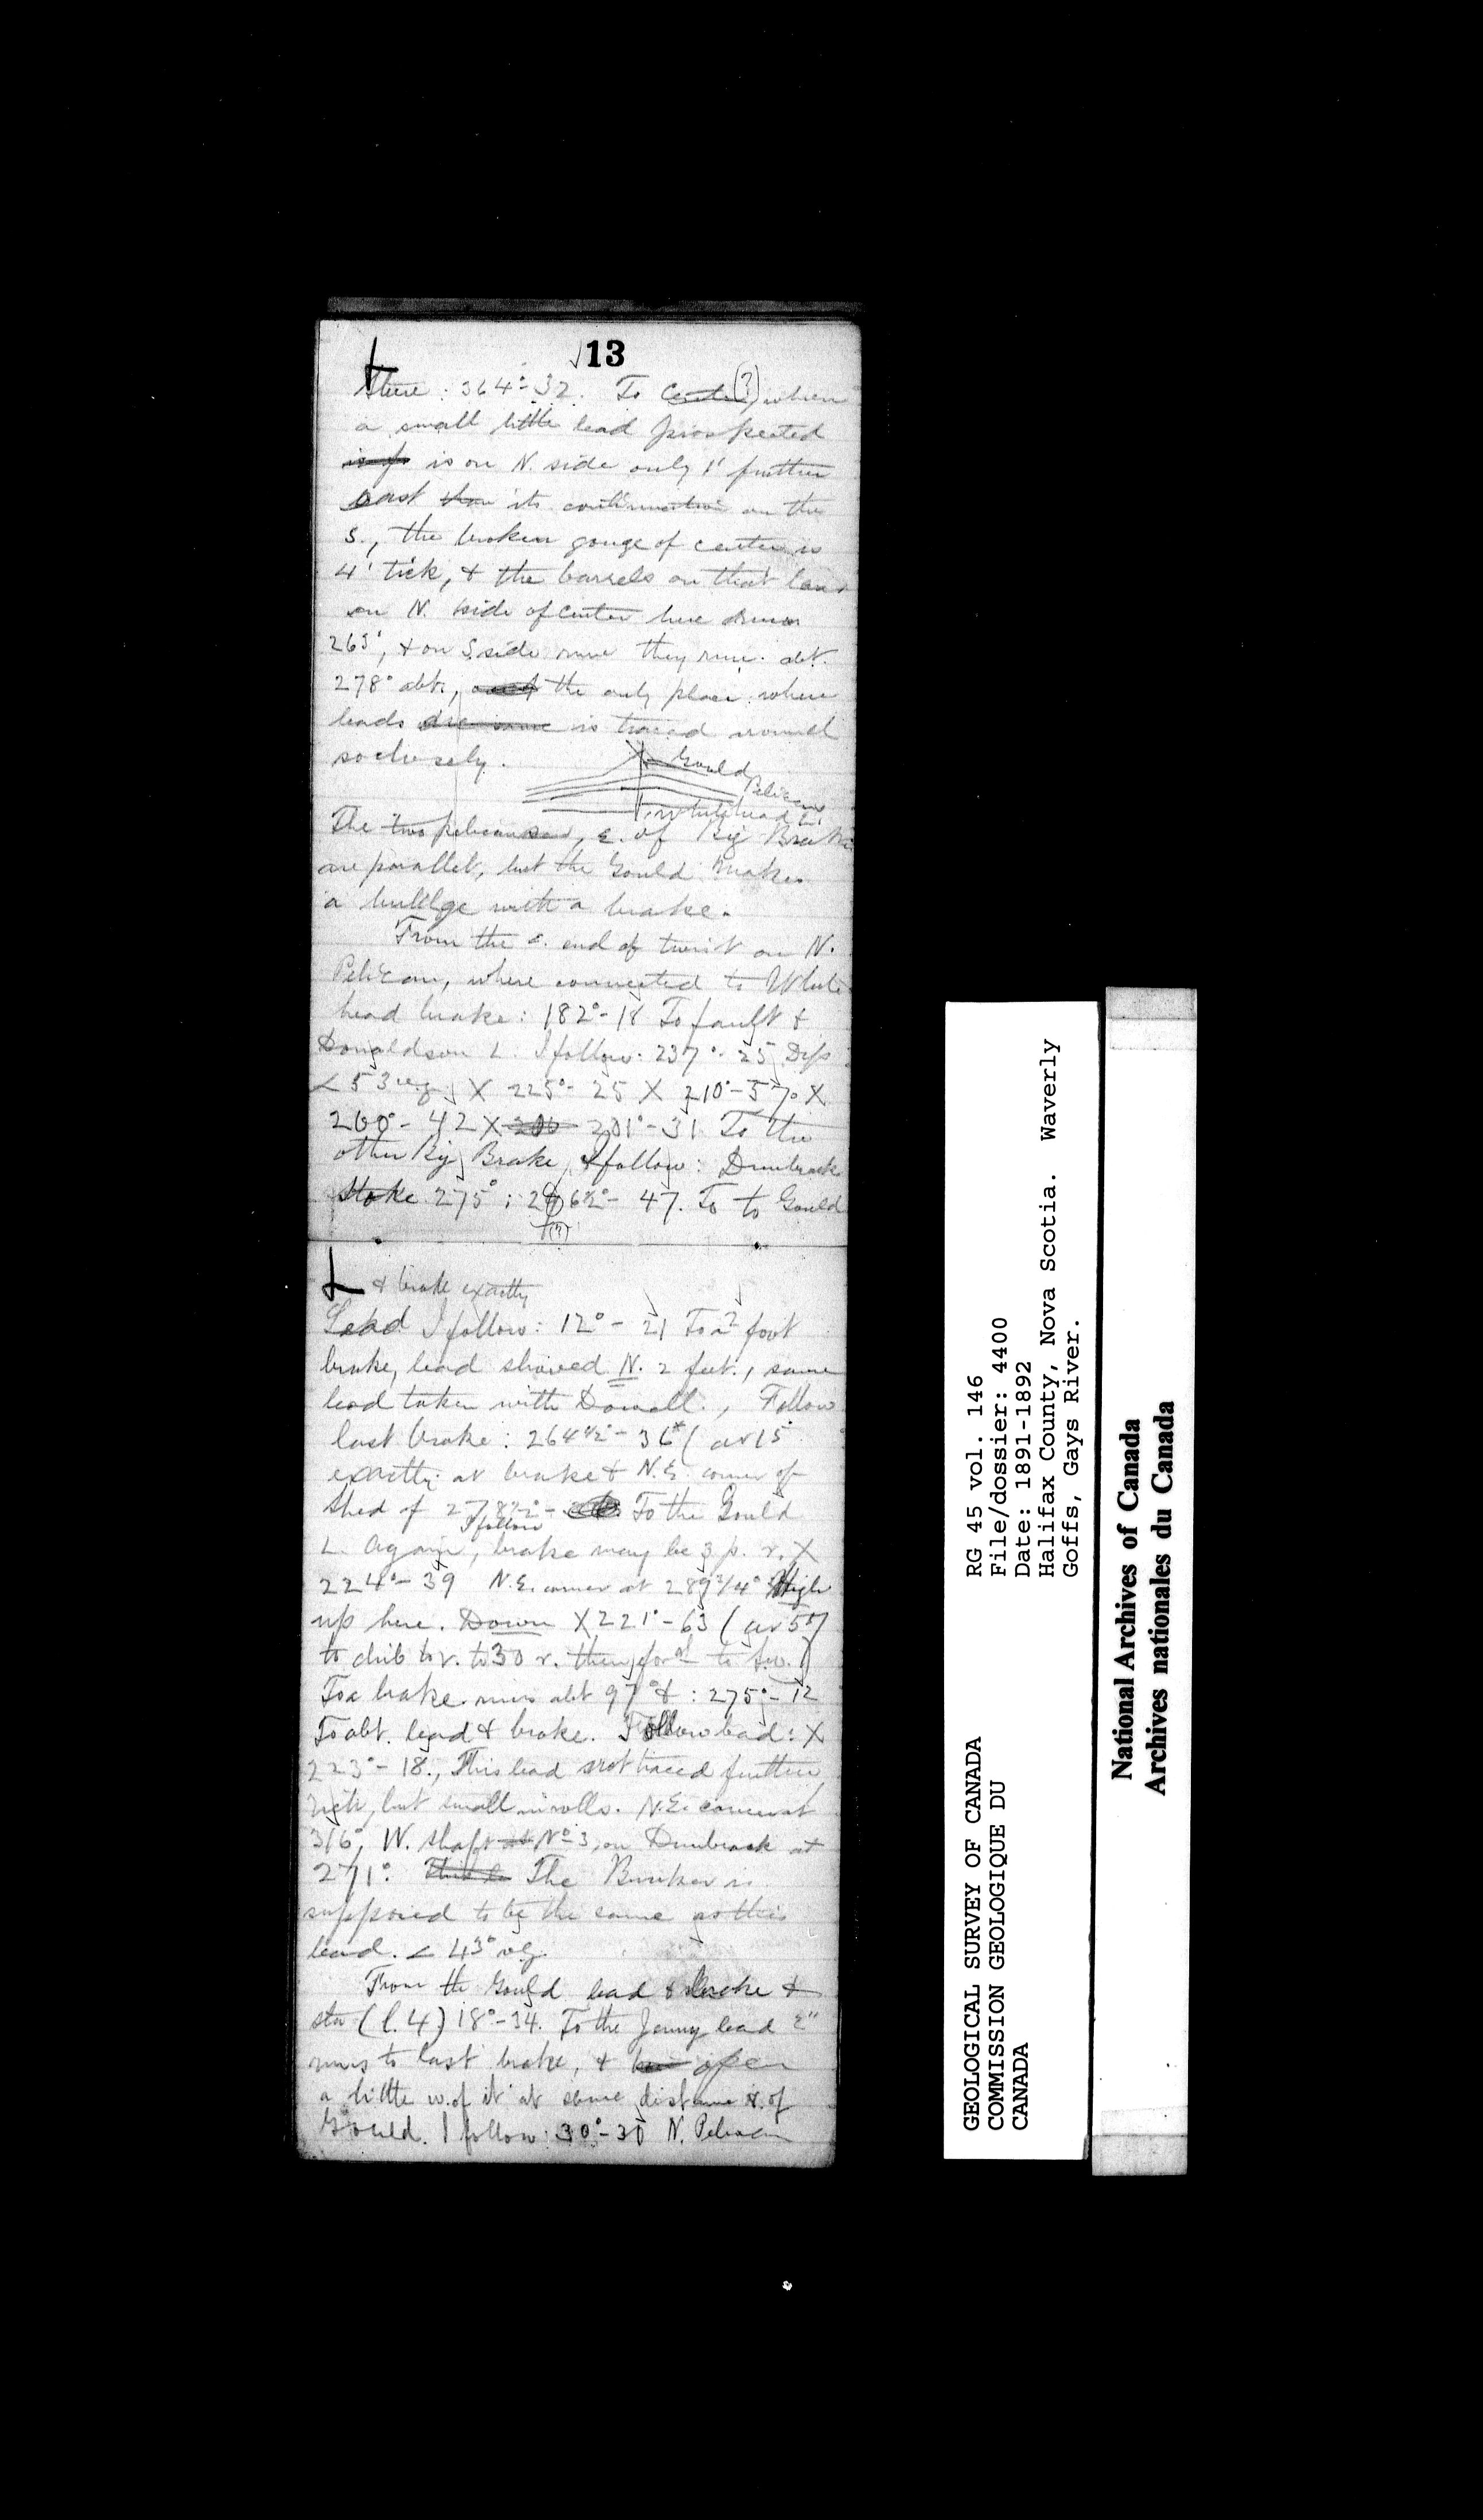 √13
there: 364°-32. To Center (?) when
a small little lead prospected
is on N. side only 1' further
east than its continuation on the
S., the broken gouge of center is
4' tick, & the barrels on that
on N. side of center here
263°, & on S. side they run abt.
278° abt., the only place where
leads is traced round
so closely.
Gould
Pelican
Whitehead L.
The two pelican, E. of Big Brake
are parallel, but the Gould makes
a bulldge with a brake.
From the E. end of twist on N.
Pelican, where connected to White
head brake: 182°-18 To fault &
Donaldson L. I follow: 237°-25 Dip
< 53° X 225°-25 X 210°-57. X
260°-42 X 201°-31 To the
other Big Brake, & follow: Dumbrack
Stake 275°; 47. To to Gould
(?)
& brake exactly
Lead I follow: 12°-21 To a 2 foot
brake, lead shoved N. 2 feet, same
lead taken with Dowell., Follow
last brake: 264½°-36 (at 15
exactly at brake & N.E. corner of
shed of 278½°- To the Gould
I follow
L. again, brake may be 3 p. r. X
224°-39 N.E. corner at 289¾° High
up here. Down X 221°-63 (at 57
to r. to 30 r. then to )
To a brake runs abt 97° & : 275°-12
To abt. lead & brake. Follow lead: X
223°-18., This lead not traced further
but small in rolls. N.E. corner at
316°, W. shaft No 3, on Dumbrack at
271°. The Bunker is
supposed to be the same as this
lead. < 43°
From the Gould lead & brake &
sta (l. 4) 18°-34. To the Jenny lead E"
runs to last brake, & open
a little w. of it at same distance N. of
Gould. I follow: 30°-30 N. Pelican
RG 45 vol. 146
File/dossier: 4400
Date: 1891-1892
Halifax County, Nova Scotia. Waverly
Goffs, Gays River.
GEOLOGICAL SURVEY OF CANADA
COMMISSION GEOLOGIQUE DU
CANADA
National Archives of Canada
Archives nationales du Canada